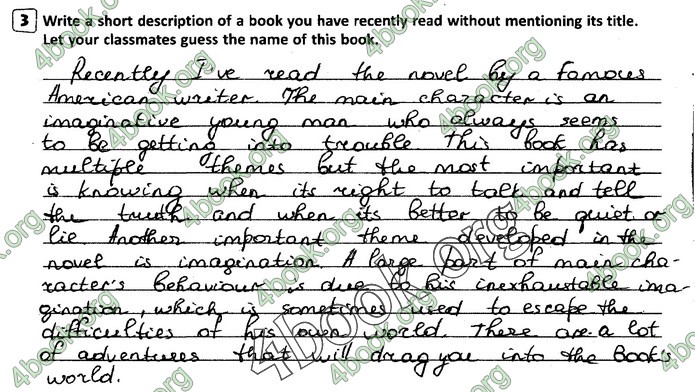 3 Write a short description of a book you have recently read without mentioning its title.
Let your classmates guess the name of this book.
Recently I've read the novel by a famous
American writer. The main character is an
imaginative young man who always seems
to be getting into trouble This book has
multiple themes but the most important
is knowing when its right to talk and tell
the truth and when its better to be quiet or
lie Another important theme developed in the
novel is imagination. A large part of main cha-
racter's behaviour is due to his inexhaustable ima-
gination, which is sometimes used to escape the
difficulties of his own world. There are a lot
of adventures that will drag you into the Book's
world.
4book.org